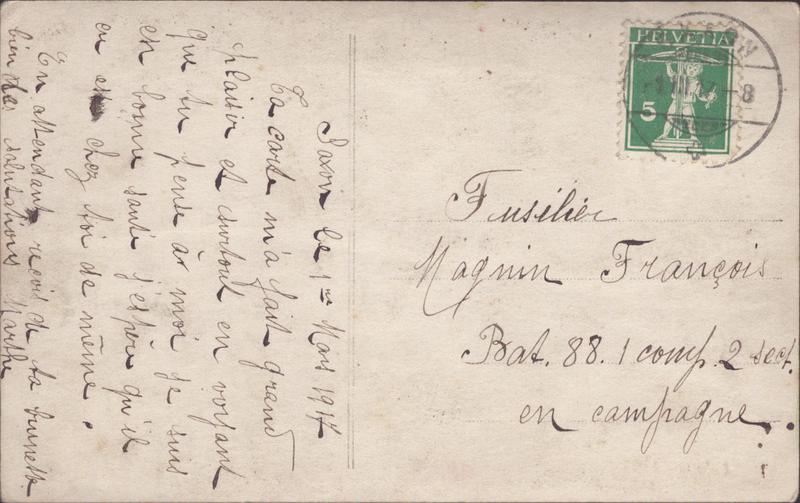 Saxon le 1er Mars 1917
Ta carte m'a fait grand
plaisir et surtout en voyant
que tu pense à moi je suis
en bonne santé j'espère qu'il
en est chez toi de même.
En attendant reçois de ta brunette
bien des salutations Marthe
HELVETIA
5
Fusélier
Magnin François
Bat. 88. 1 comp. 2 sect.
en campagne